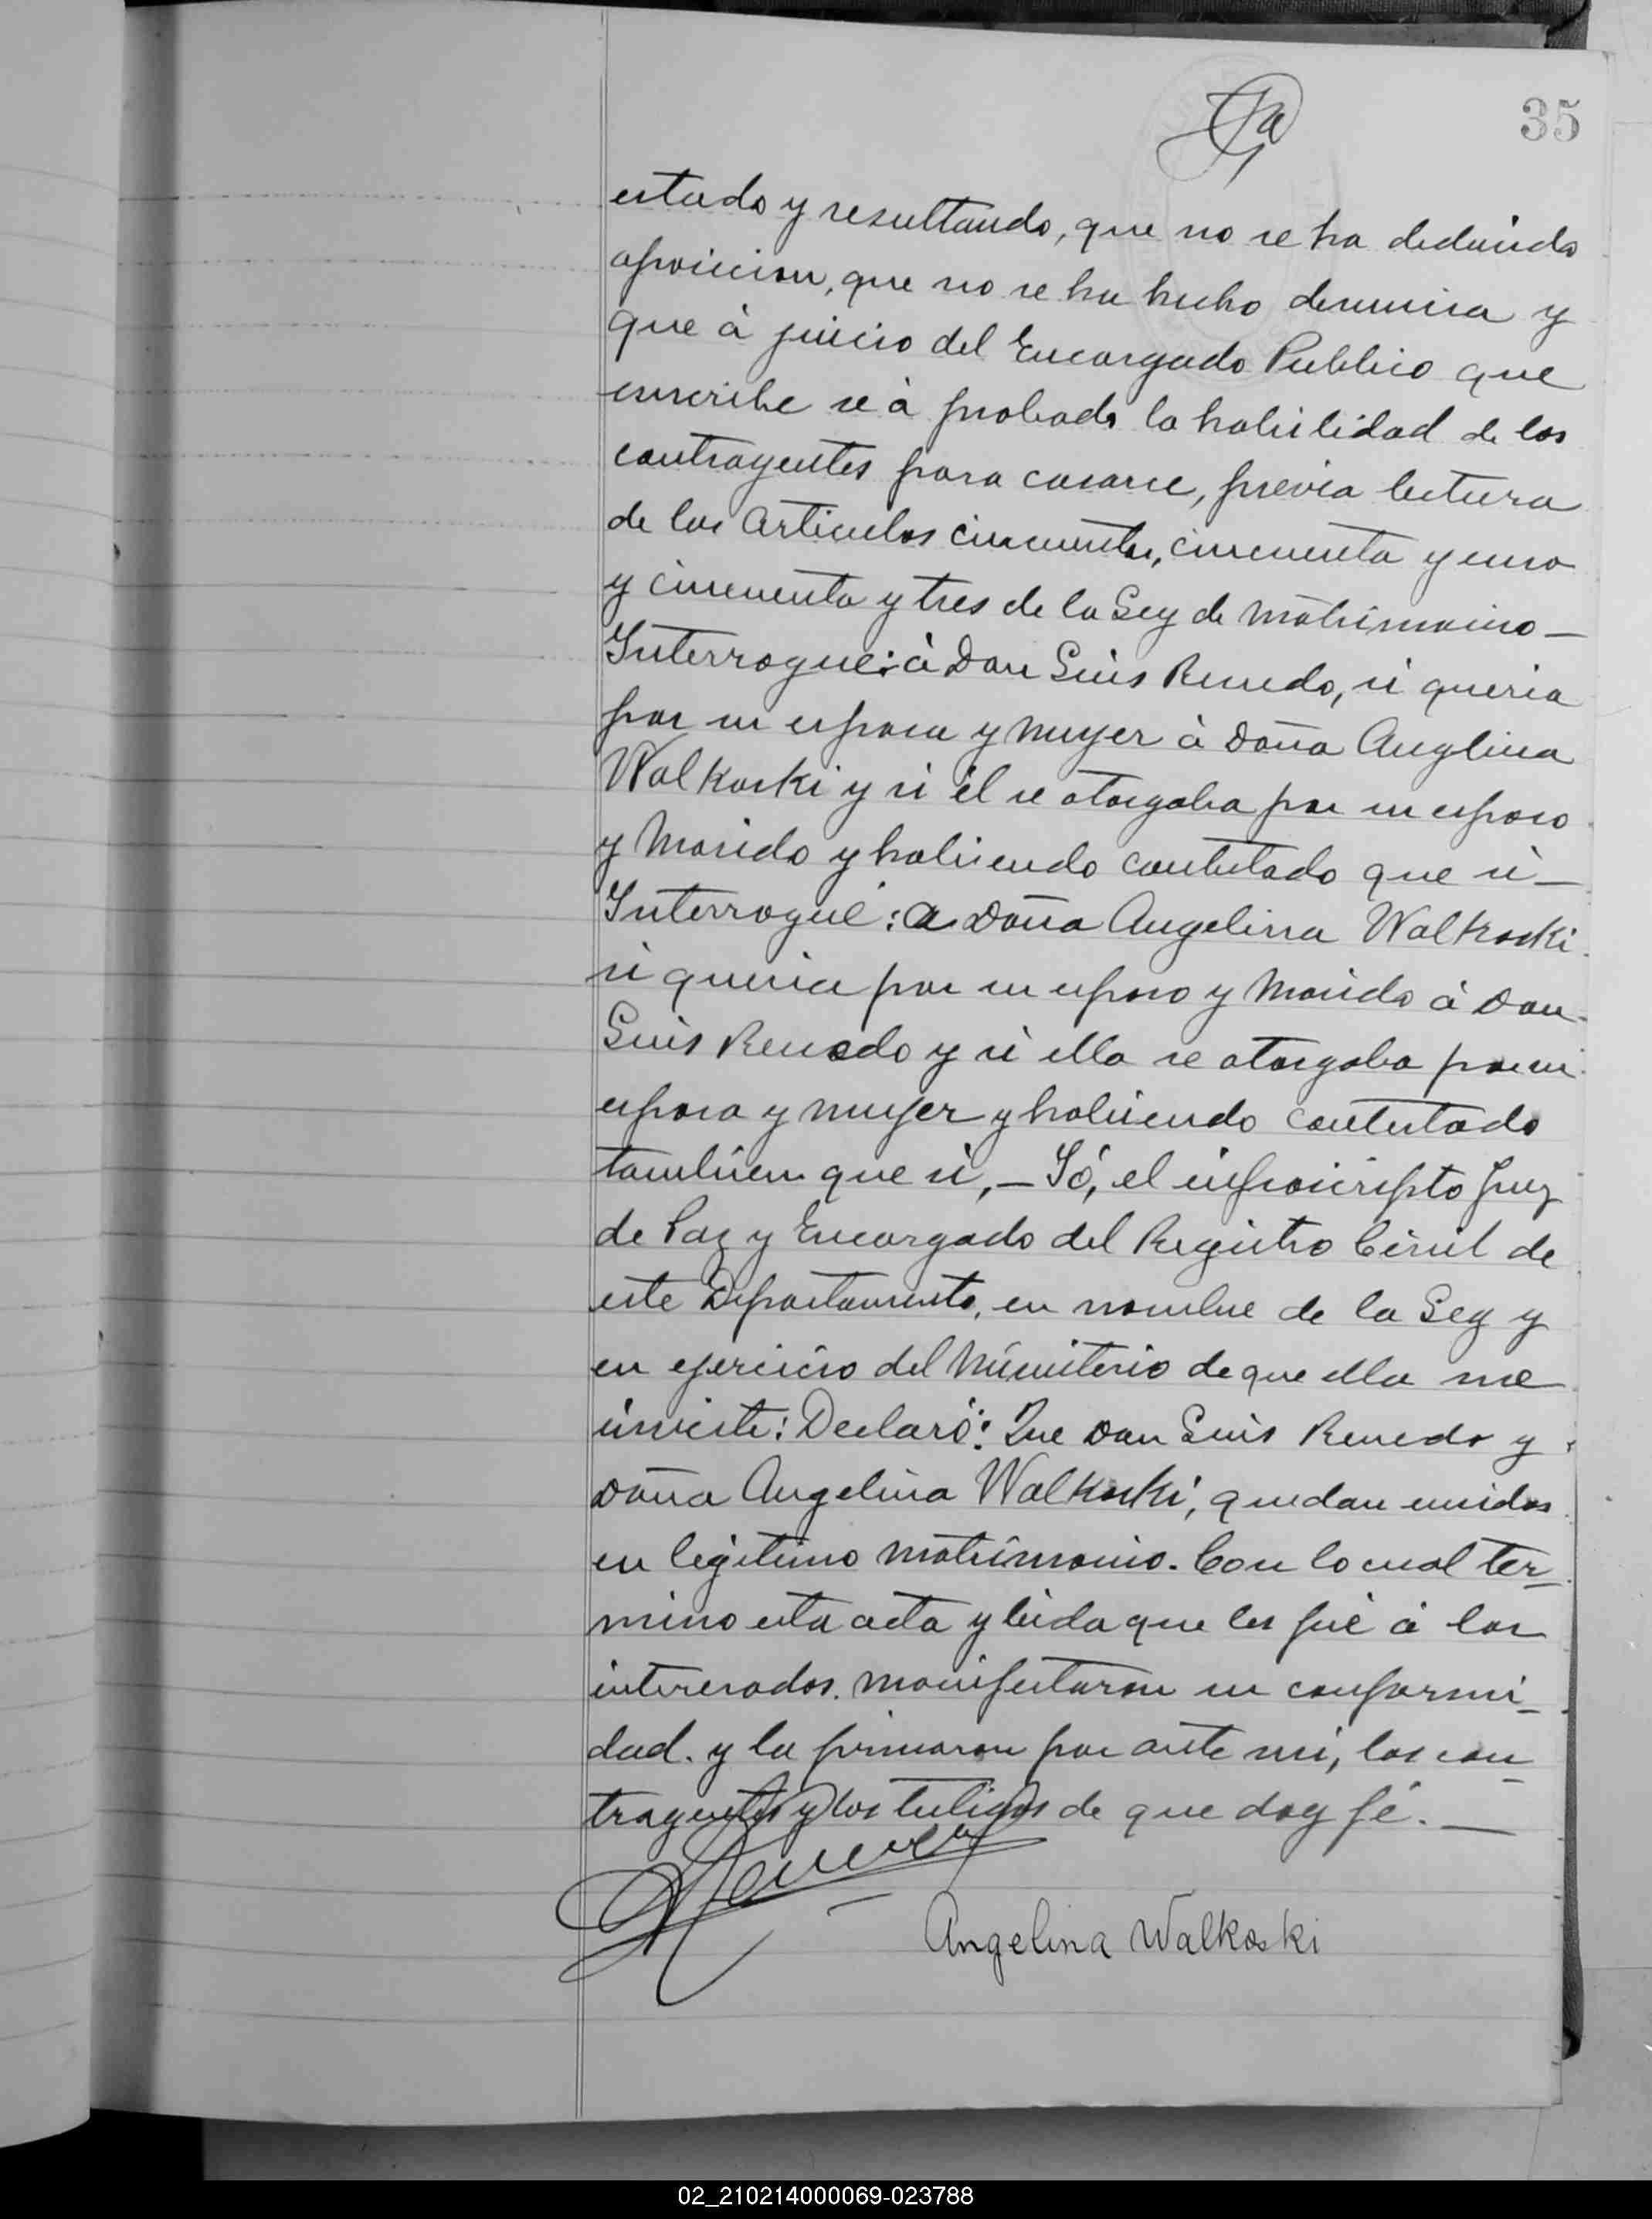 35
estado y resultando, que no se ha deducido
oposicion, que no se ha hecho denuncia y
que à juicio del Encargado Publico que
suscribe se à probado la habilidad de los
contrayentes para casarse, previa lectura
de los Articulos cincuenta, cincuenta y uno
y cincuenta y tres de la Ley de Matrimonio—
Interrogué: à Don Luis Renedo, si queria
por su esposa y Mujer à Doña Anglina
Walkoski y si él se otorgaba por su esposo
y Marido y habiendo contestado que si—
Interrogué: a Doña Angelina Walkoski
si queria por su esposo y Marido à Don
Luis Renedo y si ella se otorgaba por su
esposa y mujer y habiendo contestado
tambien que si,— Yó, el infrascripto Juez
de Paz y Encargado del Registro Civil de
este Departamento, en nombre de la Ley y
en ejercicio del Ministerio de que ella me
inviste: Declaró: Que Don Luis Renedo y
Doña Angelina Walkoski, quedan unidos
en legitimo matrimonio. Con lo cual ter-
mino esta acta y leida que les fué à los
interesados. manifestaron su conformi-
dad. y la firmaron por ante mi, los con-
trayentes y los testigos de que doy fé.—
Angelina Walkoski
02_210214000069-023788